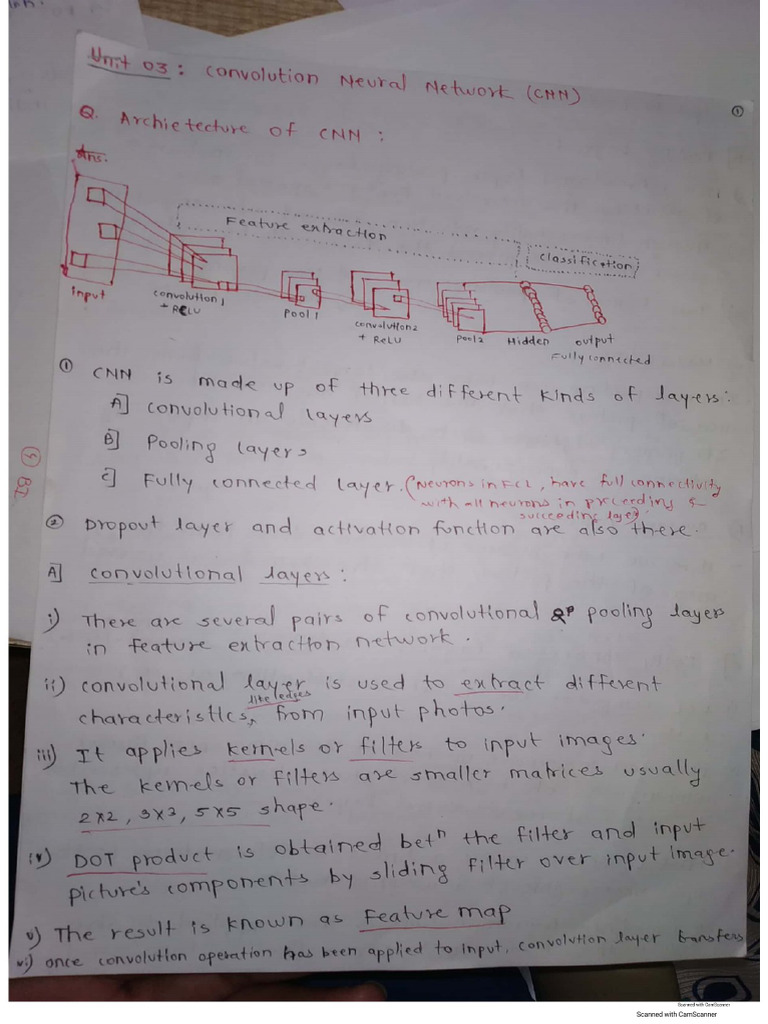 Unit 03: Convolution Neural Network (CNN)
1
Q. Archietecture of CNN :
Ans.
Feature extraction
classification
input
convolution1
+ RELU
Pool 1
convolution2
+ ReLU
Pool 2
Hidden
output
Fully connected
① CNN is made up of three different kinds of layers:
A] convolutional layers
B] Pooling layers
C] Fully connected layer. (Neurons in FCL, have full connectivity
with all neurons in preceeding &
succeeding layer).
② Dropout layer and activation function are also there.
A] convolutional layers :
i) There are several pairs of convolutional & pooling layers
in feature extraction network.
ii) convolutional layer is used to extract different
like edges
characteristics, from input photos.
iii) It applies kernels or filters to input images.
The kernels or filters are smaller matrices usually
2x2, 3x3, 5x5 shape.
iv) DOT product is obtained betn the filter and input
picture's components by sliding filter over input image.
v) The result is known as Feature map
vi) once convolution operation has been applied to input, convolution layer transfers
Scanned with CamScanner
Scanned with CamScanner